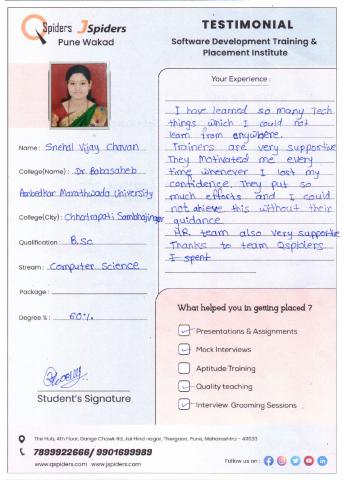 QSpiders JSpiders
Pune Wakad
TESTIMONIAL
Software Development Training &
Placement Institute
Your Experience :
I have learned so many Tech
things which I could not
learn from anywhere.
Trainers are very supportive
They Motivated me every
time whenever I lost my
confidence. They put so
much efforts and I could
not ahieve this without their
guidance.
HR team also very supportive
Thanks to team Qspiders.
I spent
Name : Snehal Vijay Chavan
College(Name) : Dr. Babasaheb
Ambedkar Marathwada University
College(City) : Chhatrapati Sambhajinagar
Qualification : B.Sc
Stream : Computer Science
Package :
Degree % : 60%.
Student's Signature
What helped you in getting placed ?
Presentations & Assignments
Mock Interviews
Aptitude Training
Quality teaching
Interview Grooming Sessions
The Hub, 4th Floor, Dange Chowk Rd, Jai Hind nagar, Thergaon, Pune, Maharashtra - 411033
7899922666/ 9901699989
www.qspiders.com www.jspiders.com
Follow us on :